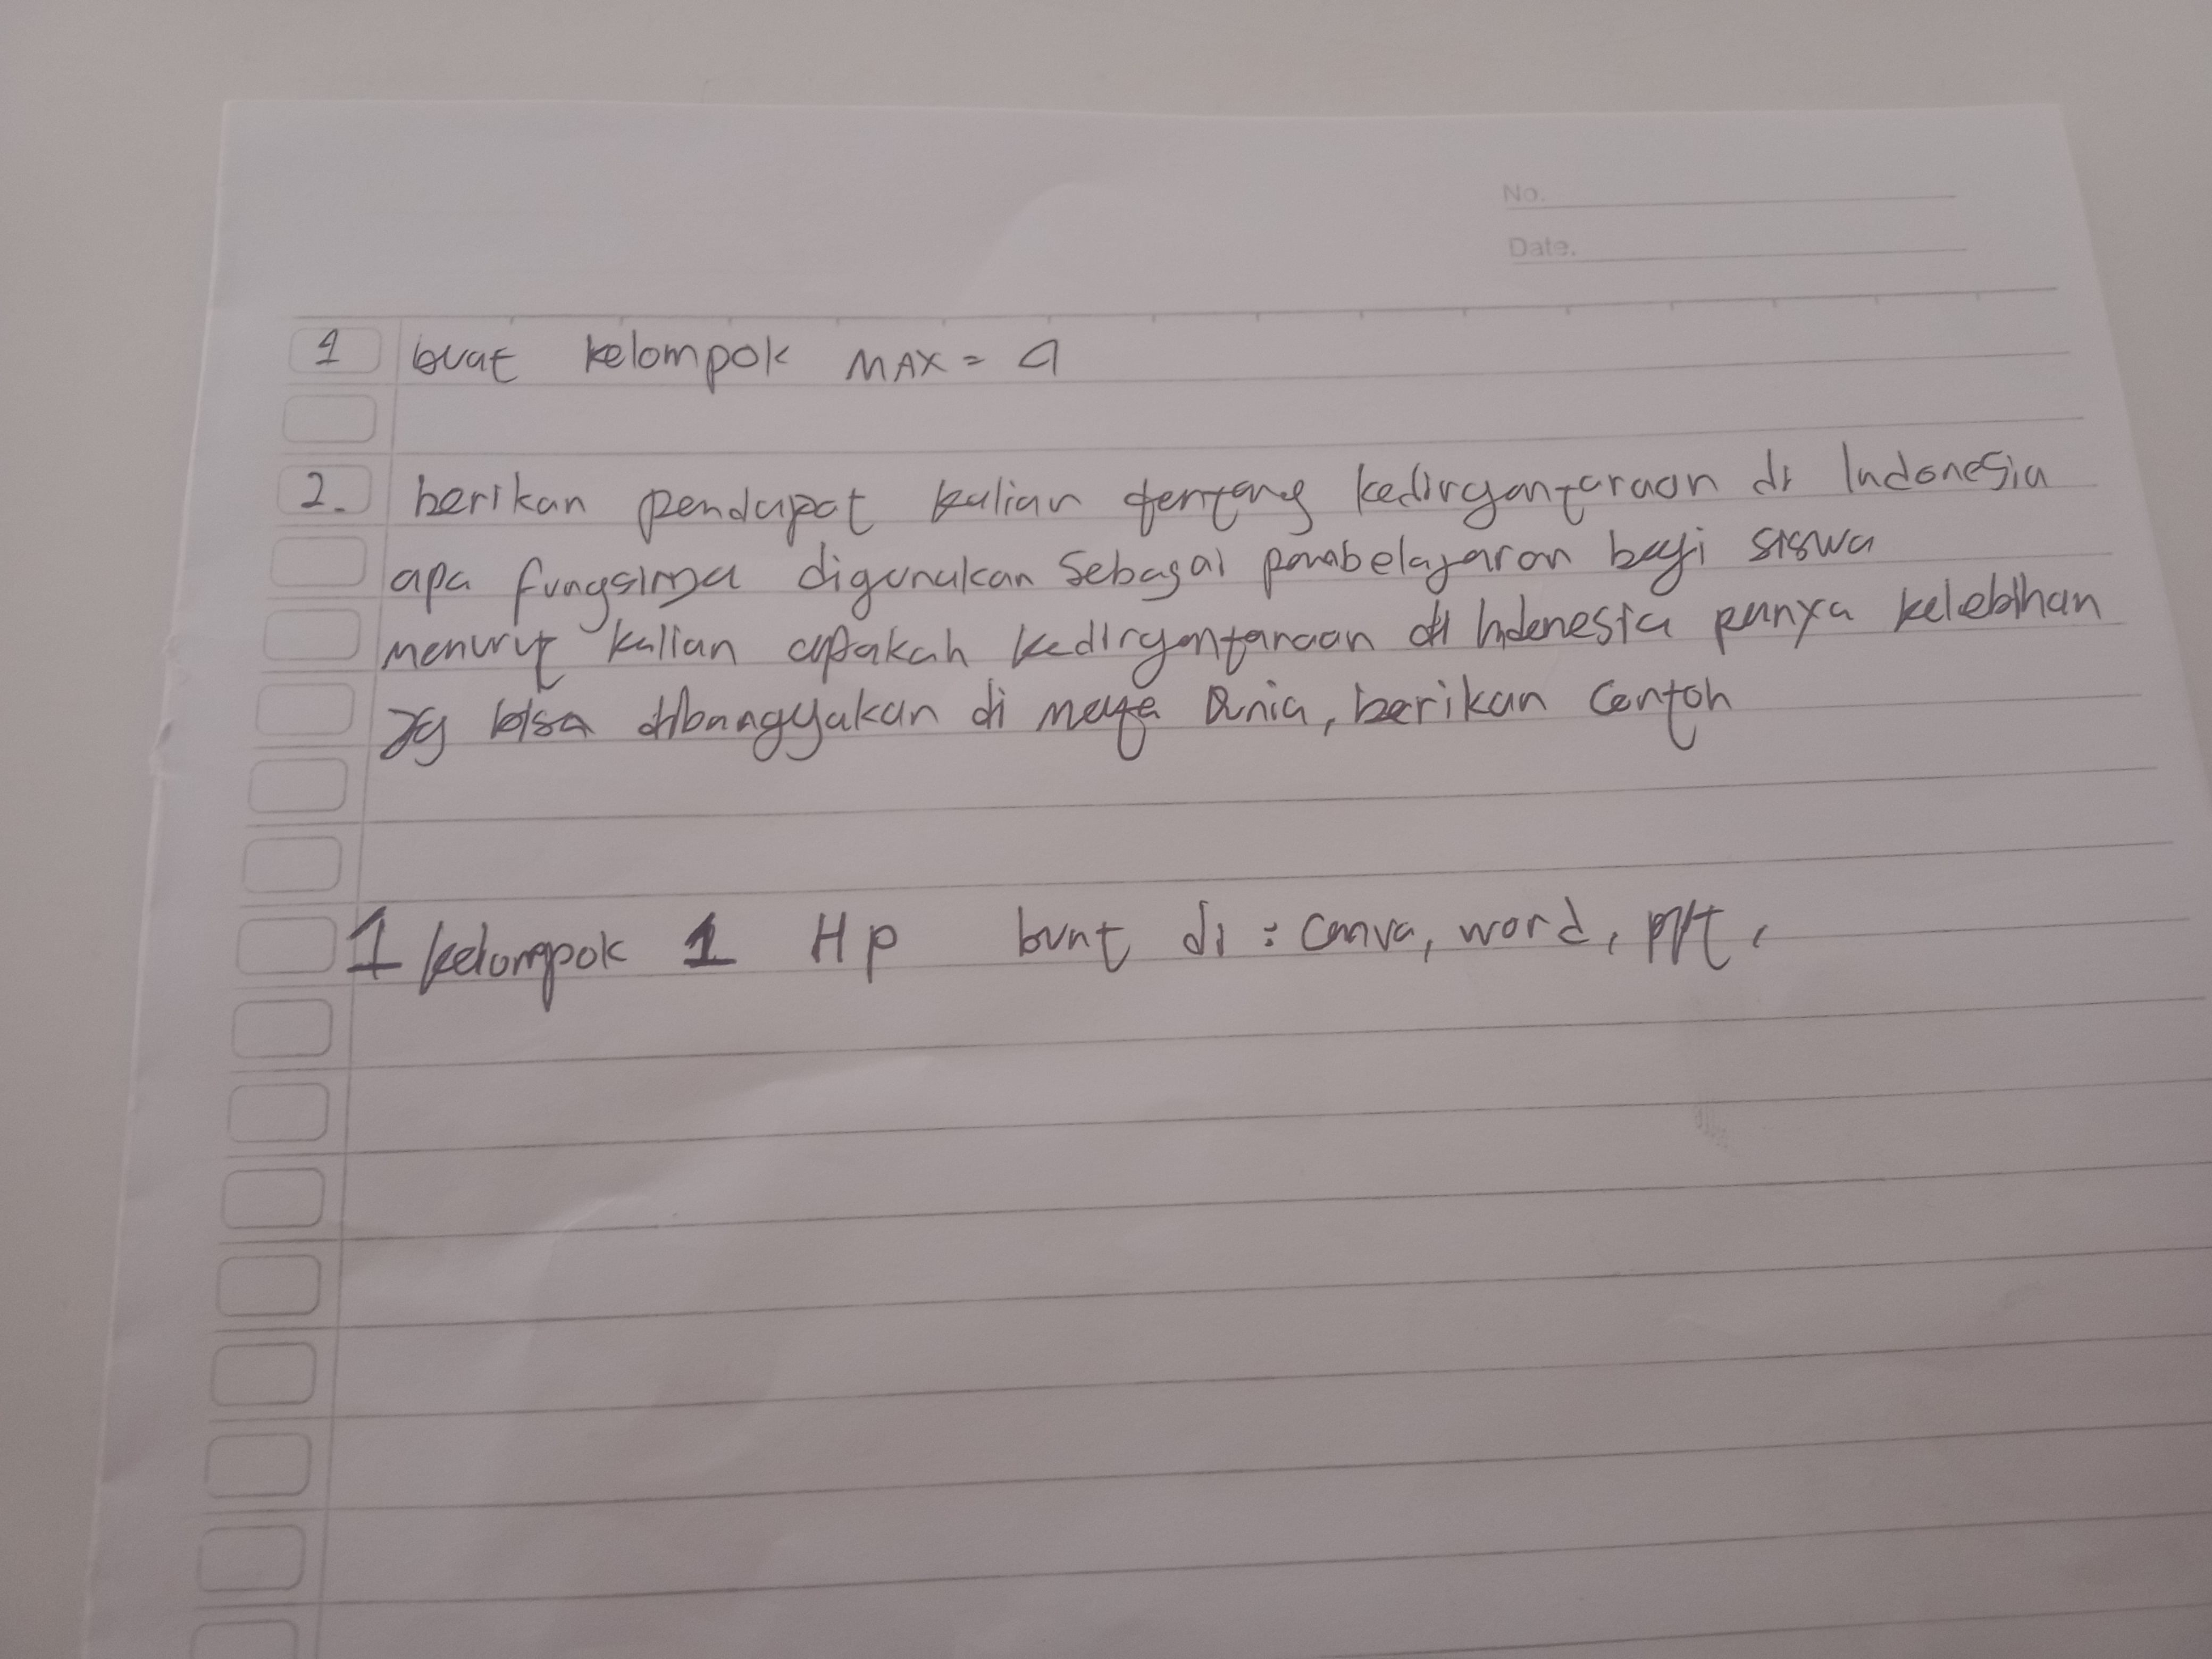 No.
Date.
1 buat kelompok MAX = 4
2. berikan pendapat kalian tentang kedirgantaraan di Indonesia
apa fungsinya digunakan sebagai pembelajaran bagi siswa
menurut kalian apakah kedirgantaraan di Indonesia punya kelebihan
yg bisa dibanggakan di mata Dunia, berikan Contoh
1 kelompok 1 Hp buat di : Canva, word, ppt,